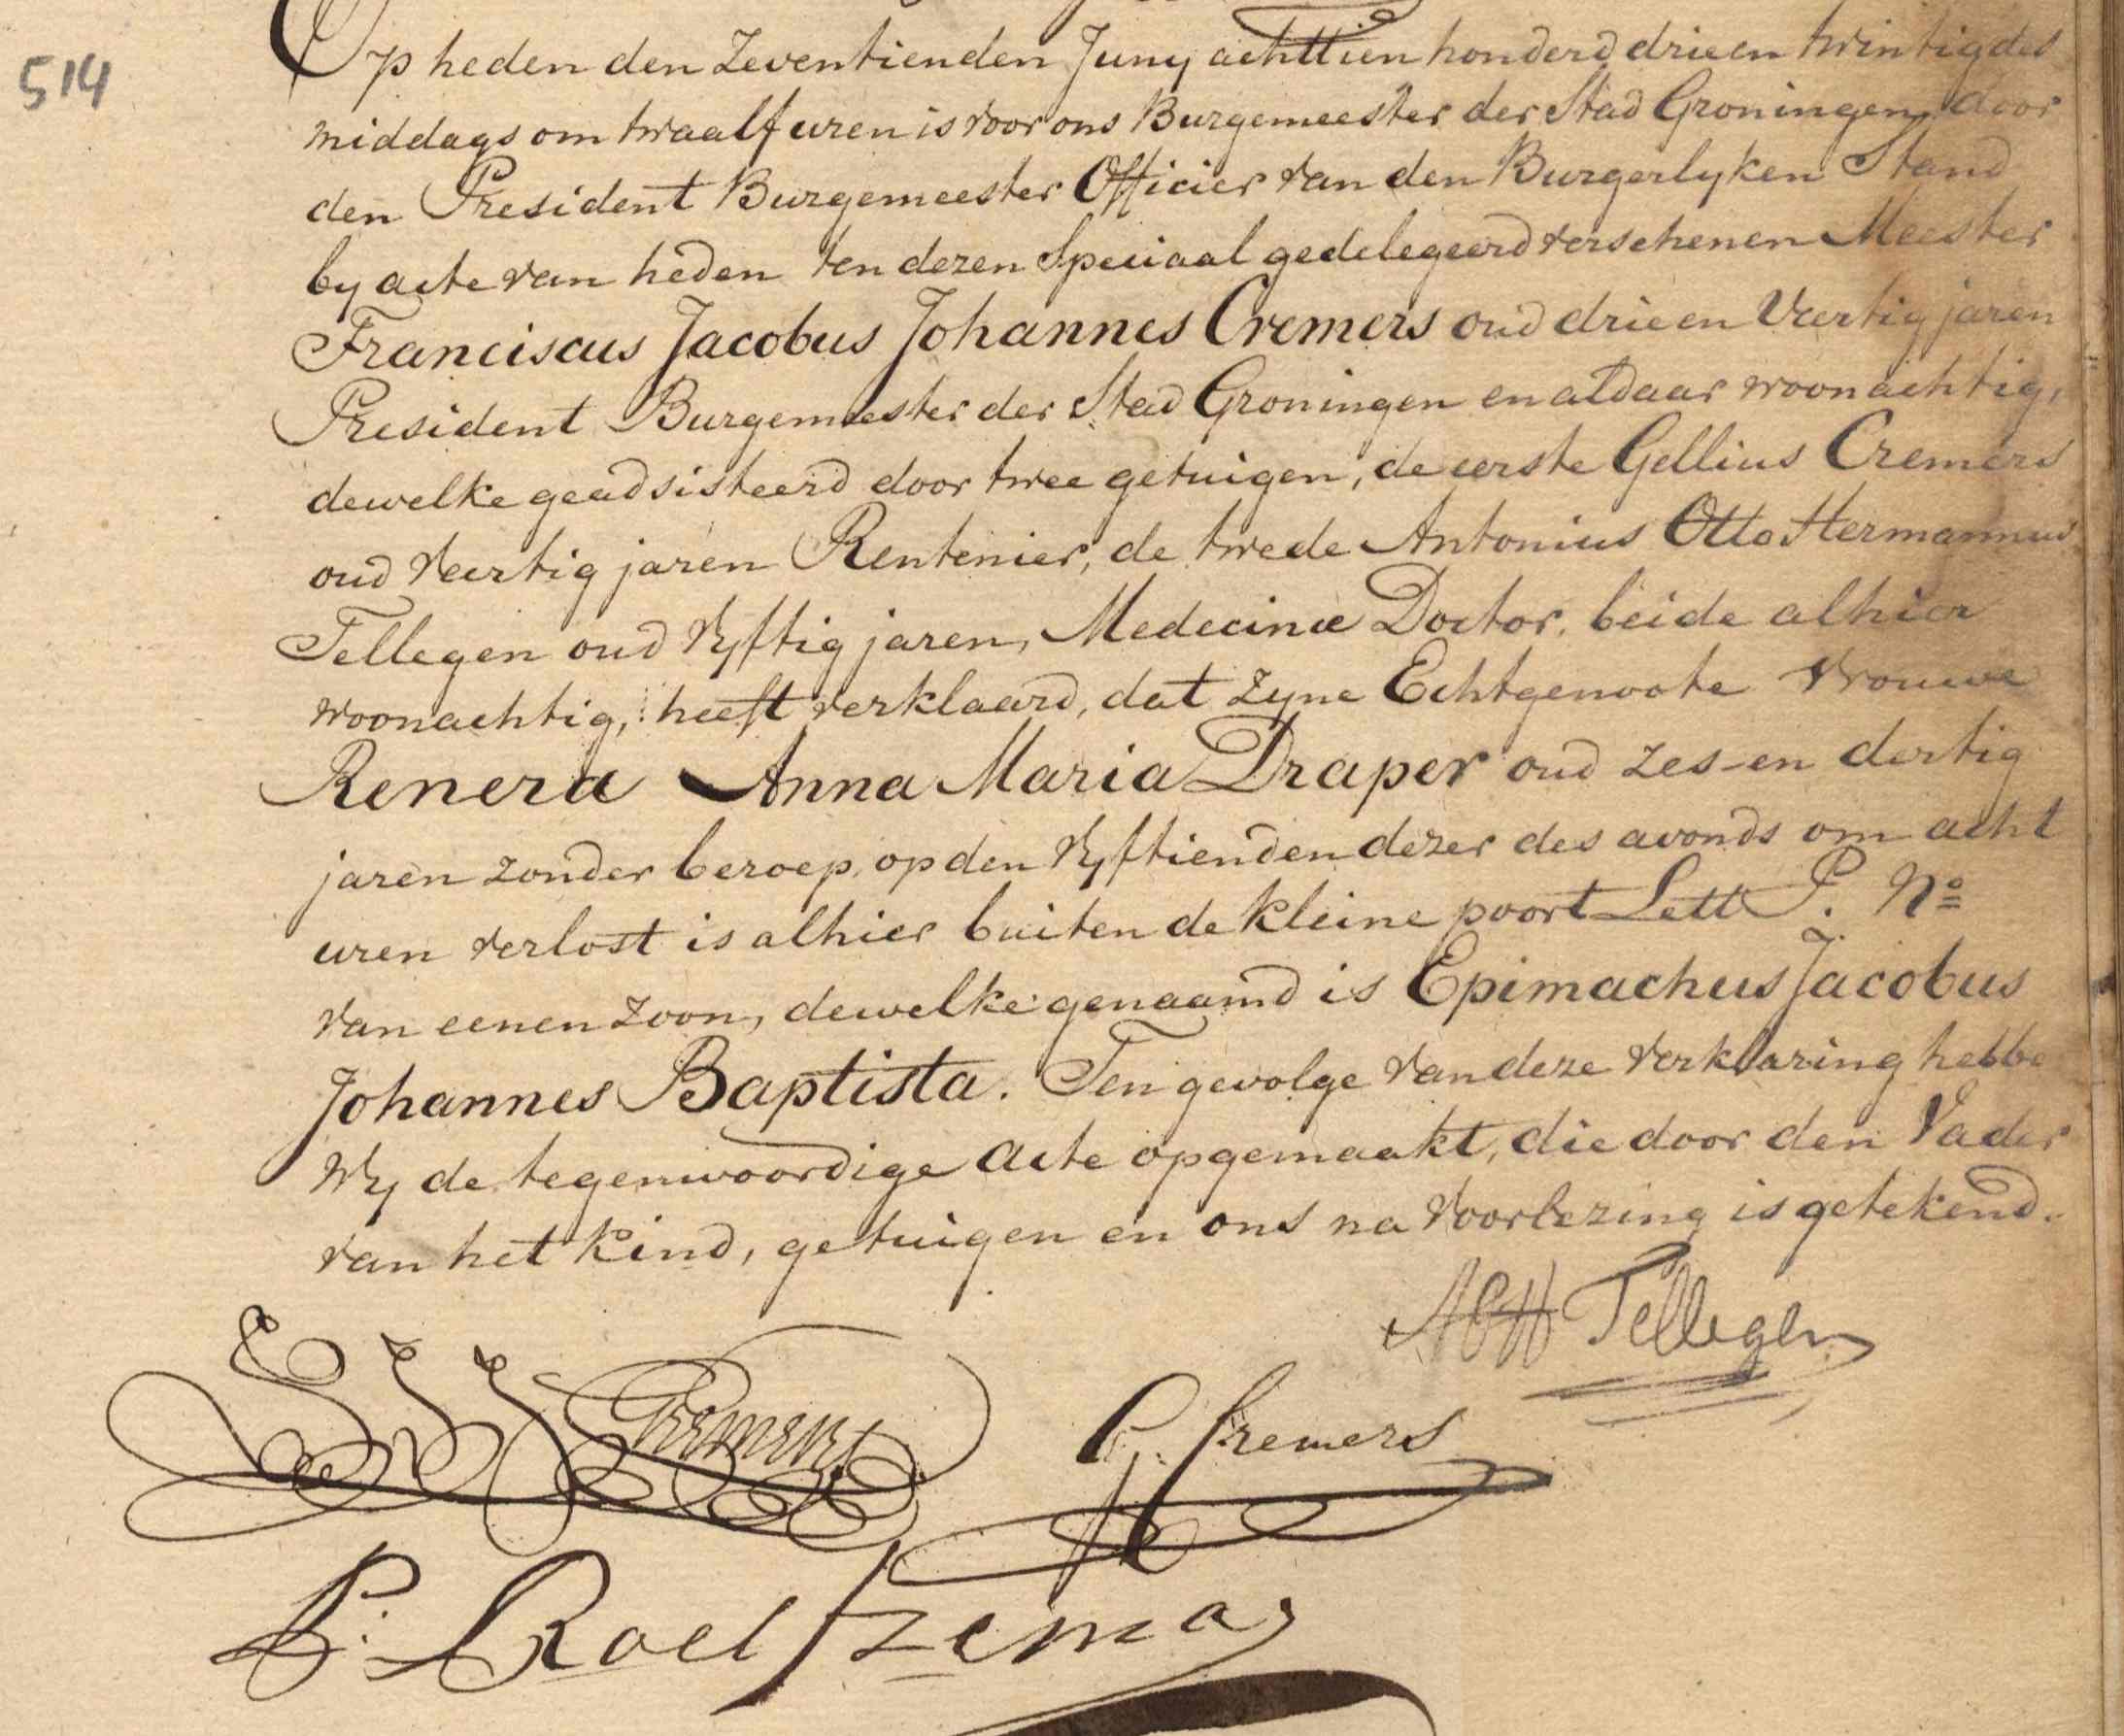 514
Op heden den Zeventienden Juny achttien honderd drie en twintig des
middags om twaalf uren is voor ons Burgemeester der Stad Groningen, door
den President Burgemeester Officier van den Burgerlyken Stand
by acte van heden ten dezen Speciaal gedelegeerd verschenen Meester
Franciscus Jacobus Johannes Cremers oud drie en Veertig jaren
President Burgemeester der Stad Groningen en aldaar woonachtig,
dewelke geadsisteerd door twee getuigen, de eerste Gellius Cremers
oud veertig jaren Rentenier, de twede Antonius Otto Hermannus
Tellegen oud Vyftig jaren, Medecinæ Doctor, beide alhier
woonachtig, heeft verklaard, dat zyne Echtgenoote Vrouwe
Renera Anna Maria Draper oud zes-en dertig
jaren zonder beroep, op den Vyftienden dezer des avonds om acht
uren verlost is alhier buiten de kleine poort Lett P. No
van eenen zoon, dewelke genaamd is Epimachus Jacobus
Johannes Baptista. Ten gevolge van deze verklaring hebbe
Wy de tegenwoordige acte opgemaakt, die door den Vader
van het kind, getuigen en ons na voorlezing is getekend.
AOH Tellegen
Cremers
G. Cremers
P. Roelfzema